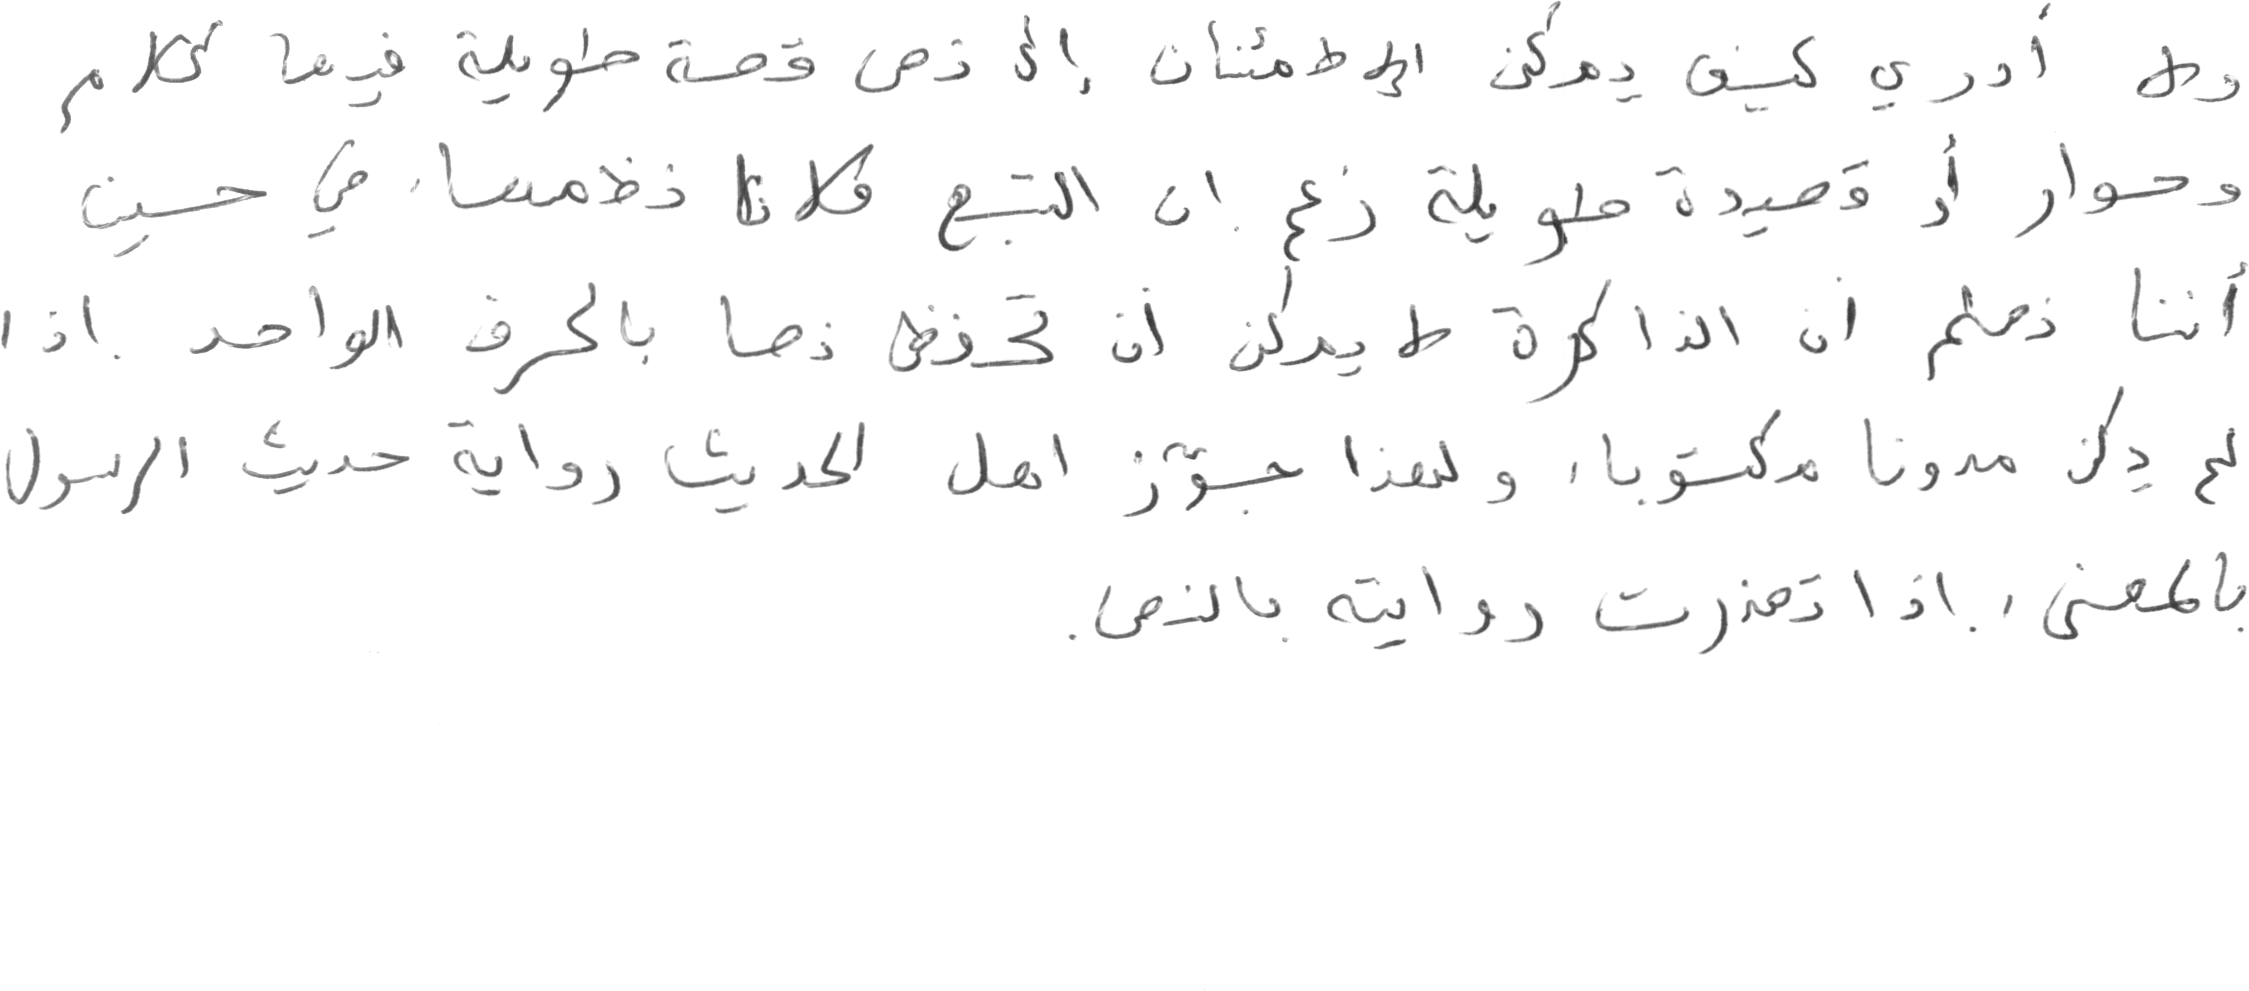 ولا أدري كيف يمكن الاطمئنان إلى نص قصة طويلة فيها كلام
وحوار أو قصيدة طويلة زعم إن التبع فلانا نظمها، في حين
أننا نعلم أن الذاكرة لا يمكن أن تحفظ نصا بالحرف الواحد إذا
لم يكن مدونا مكتوبا، ولهذا جوّز اهل الحديث رواية حديث الرسول
بالمعنى، إذا تعذرت روايته بالنص.